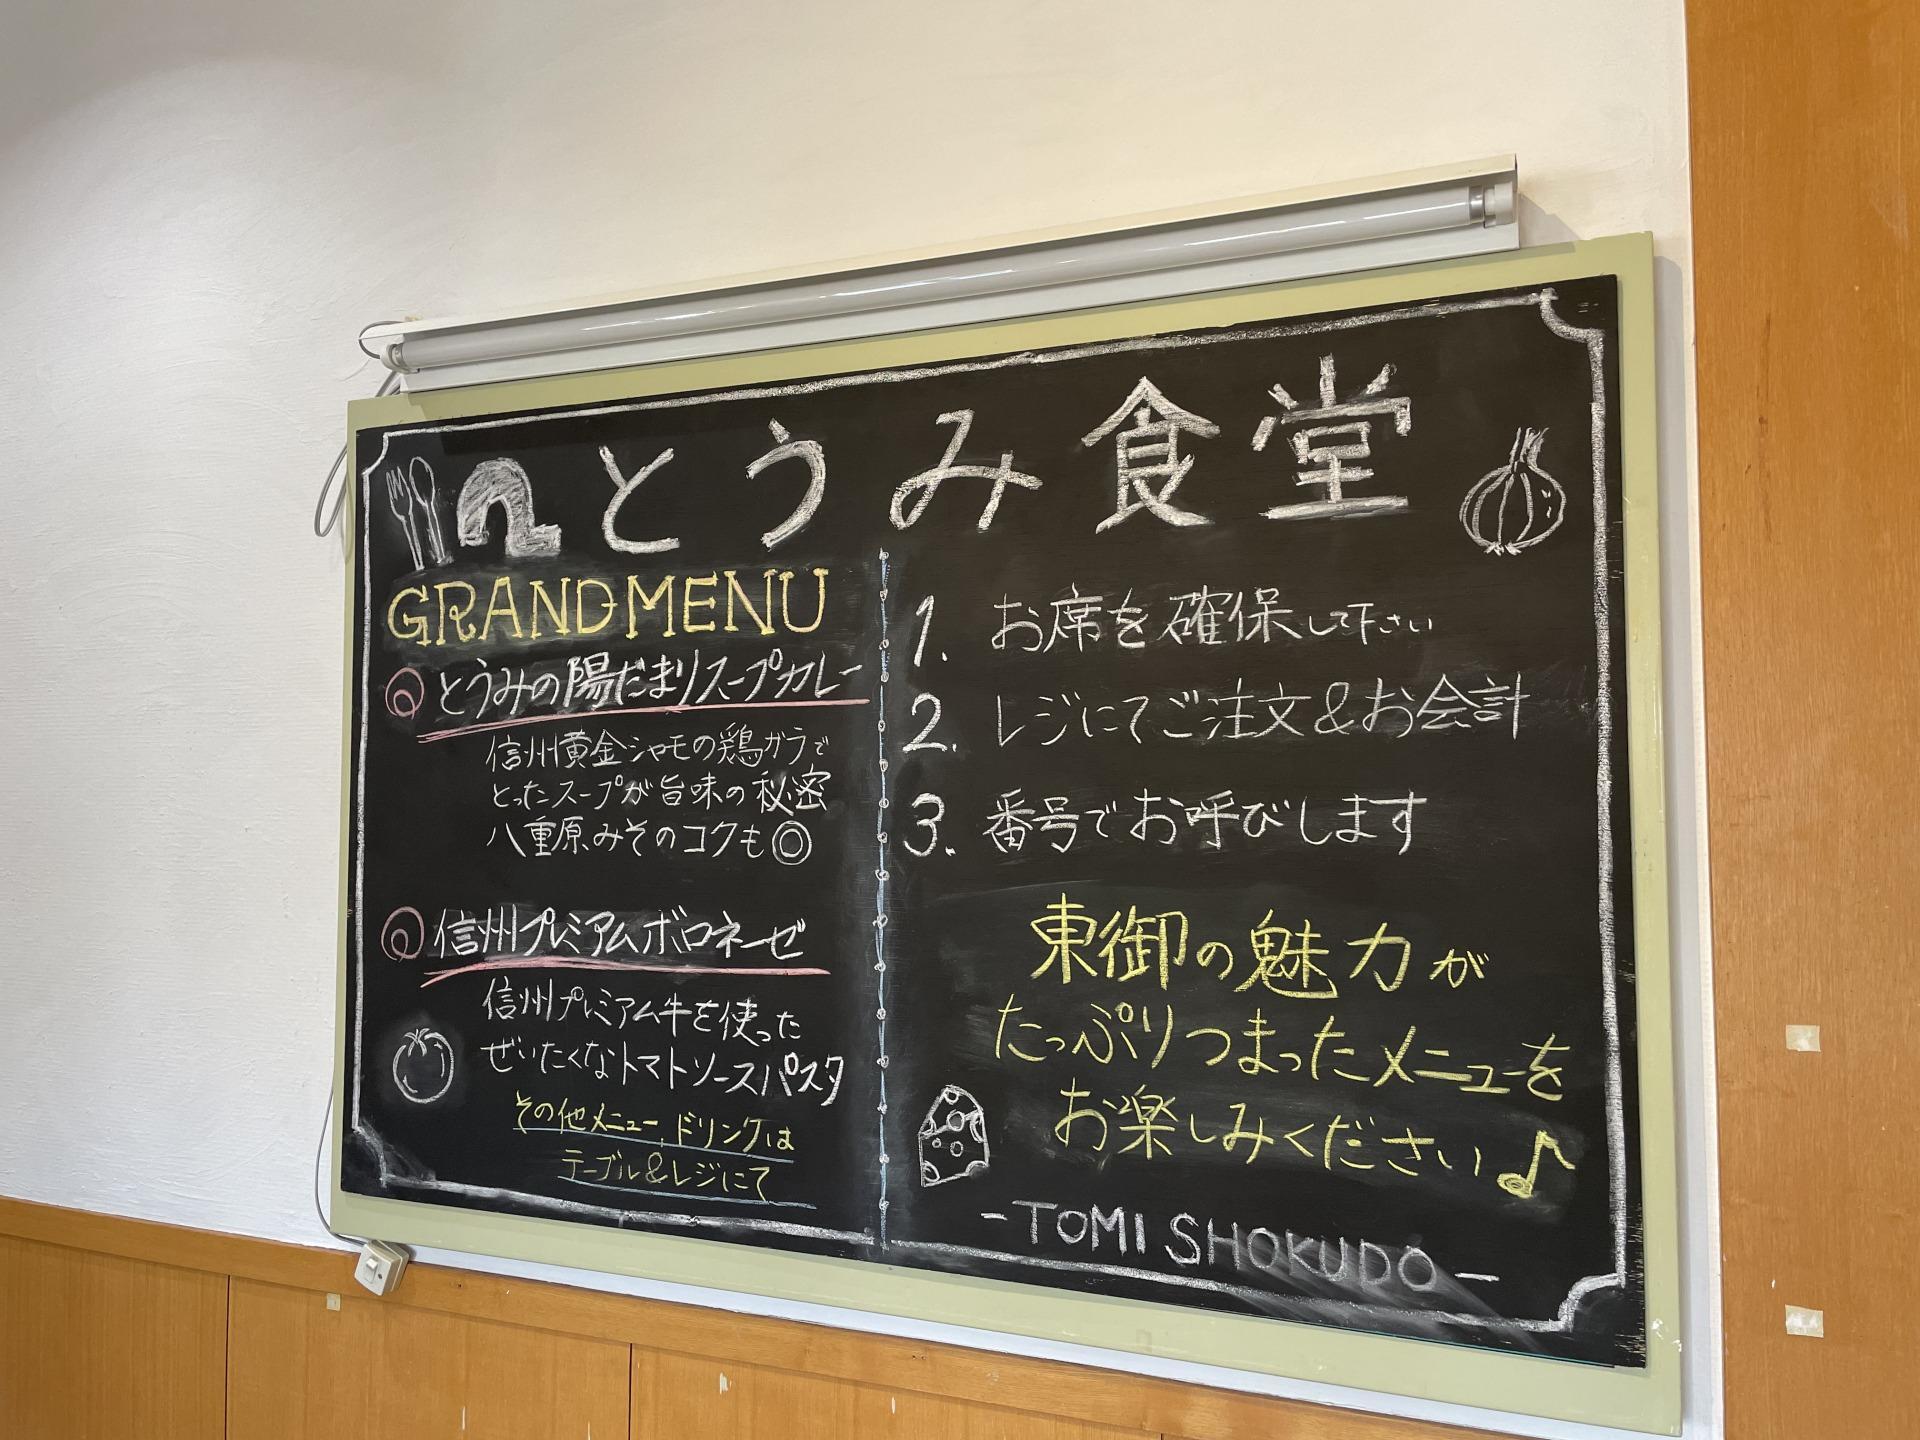 とうみ食堂
GRAND MENU
とうみの陽だまりスープカレー
信州黄金シャモの鶏ガラで
とったスープが旨味の秘密
八重原みそのコクも◎
信州プレミアムボロネーゼ
信州プレミアム牛を使った
ぜいたくなトマトソースパスタ
その他メニュー、ドリンクは
テーブル&レジにて
1. お席を確保して下さい
2. レジにてご注文&お会計
3. 番号でお呼びします
東御の魅力が
たっぷりつまったメニューを
お楽しみください♪
-TOMI SHOKUDO-